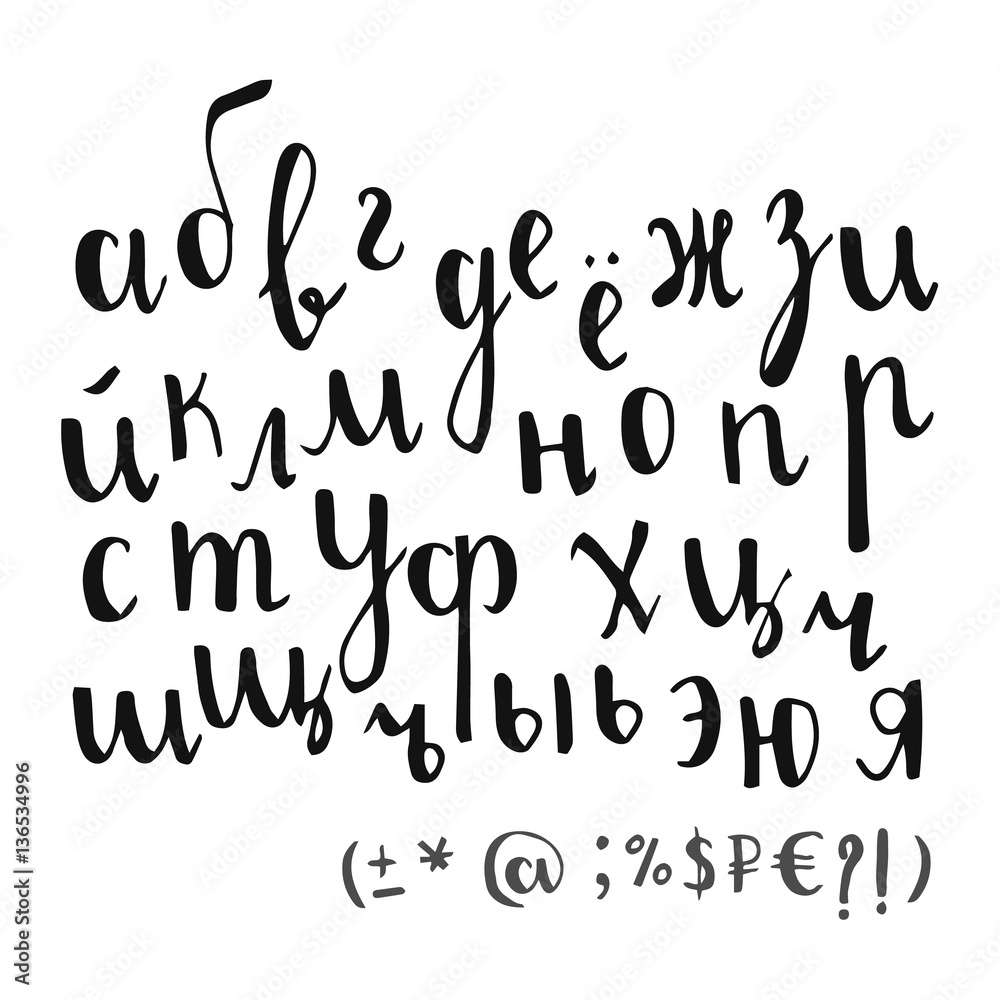 а б в г д е ё ж з и
й к л м н о п р
с т у ф х ц ч
ш щ ъ ы ь э ю я
(±* @ ;%$₽€?!)
Adobe Stock | #136534996